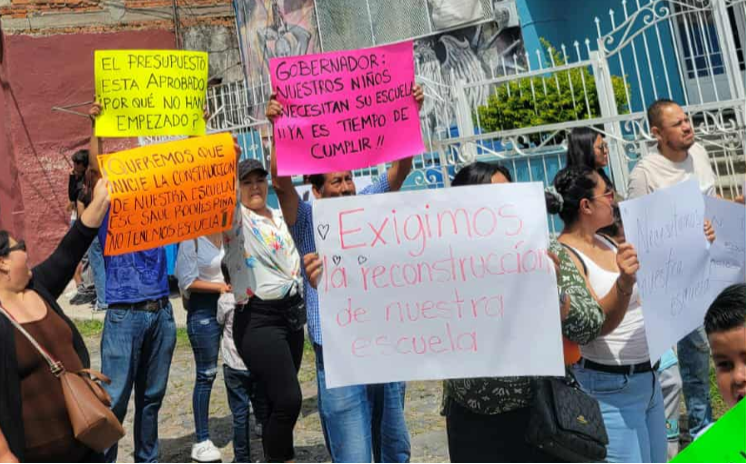 EL PRESUPUESTO
ESTA APROBADO
POR QUÉ NO HAN
EMPEZADO?
GOBERNADOR:
NUESTROS NIÑOS
NECESITAN SU ESCUELA
¡¡YA ES TIEMPO DE
CUMPLIR!!
QUEREMOS QUE
INICIE LA CONSTRUCCIÓN
DE NUESTRA ESCUELA
ESC SAUL
NO TENEMOS ESCUELA
Exigimos
la reconstrucción
de nuestra
escuela
Necesitamos
nuestra
escuela